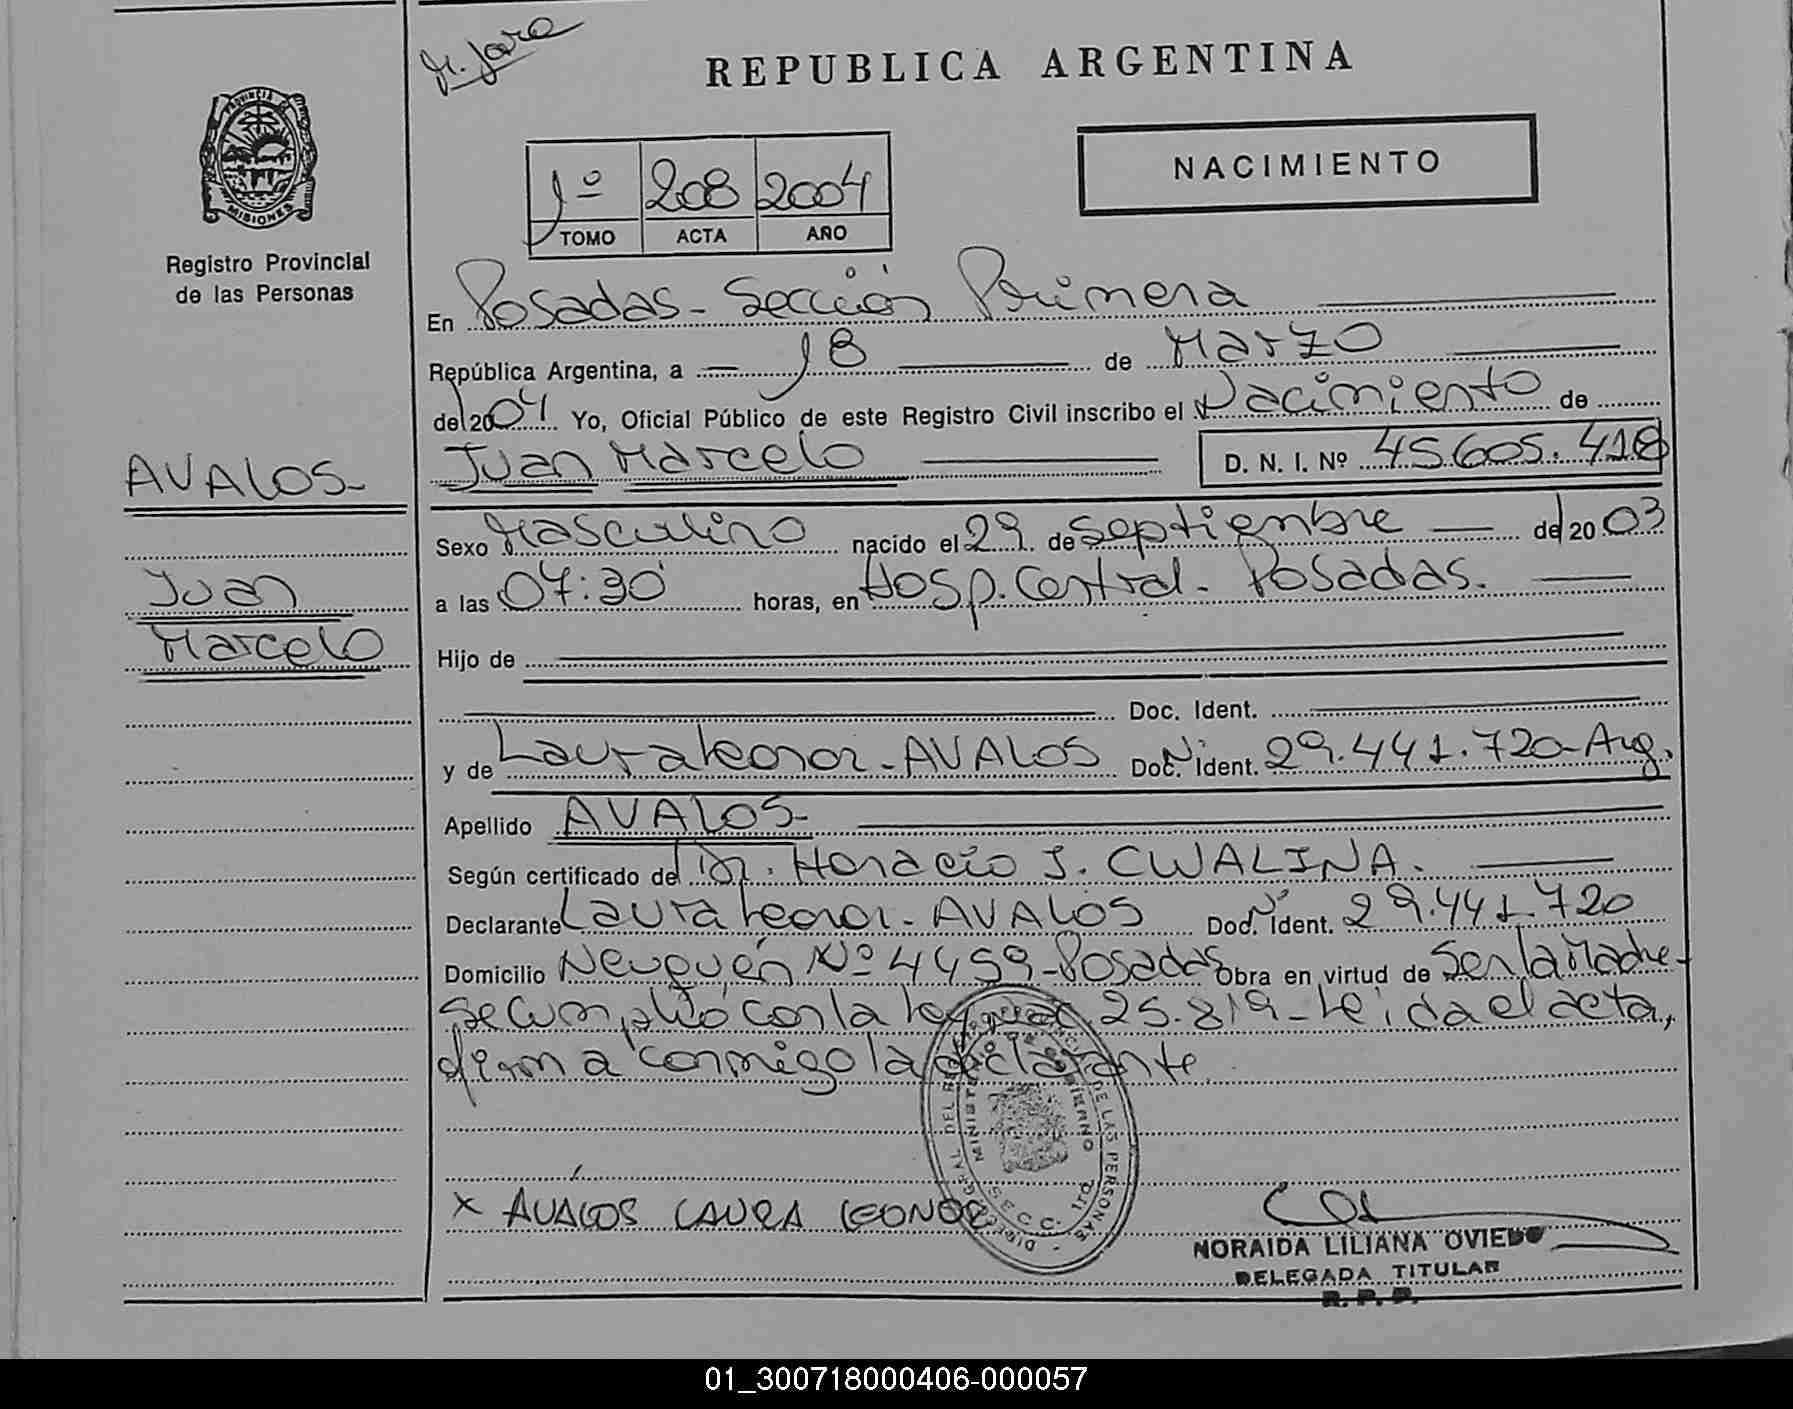 M. Jara
REPUBLICA ARGENTINA
PROVINCIA DE
MISIONES
Registro Provincial
de las Personas
NACIMIENTO
1º 208 2004
TOMO ACTA AÑO
En Posadas - Sección Primera
República Argentina, a 18 de Marzo
del 2004 Yo, Oficial Público de este Registro Civil inscribo el Nacimiento de
Juan Marcelo D. N. I. Nº 45.605.418
AVALOS-
Juan
Marcelo
Sexo Masculino nacido el 29 de Septiembre del 2003
a las 07:30 horas, en Hosp. Central - Posadas.
Hijo de
Doc. Ident.
y de Laura Leonor - AVALOS Doc. Ident. 29.441.720-Arg.
Apellido AVALOS-
Según certificado del Dr. Horacio J. CWALINA.
Declarante Laura Leonor - AVALOS Doc. Ident. 29.441.720
Domicilio Neuquén Nº 4459-Posadas Obra en virtud de Ser la Madre-
Se cumplió con la Ley 25.819 - Leída el acta,
firma conmigo la declarante.
DIREC. GRAL. DEL REG. PROVINCIAL DE LAS PERSONAS
MINISTERIO DE GOBIERNO
SECC. 1ra
x AVALOS LAURA LEONOR
NORAIDA LILIANA OVIEDO
DELEGADA TITULAR
R. P. P.
01_300718000406-000057